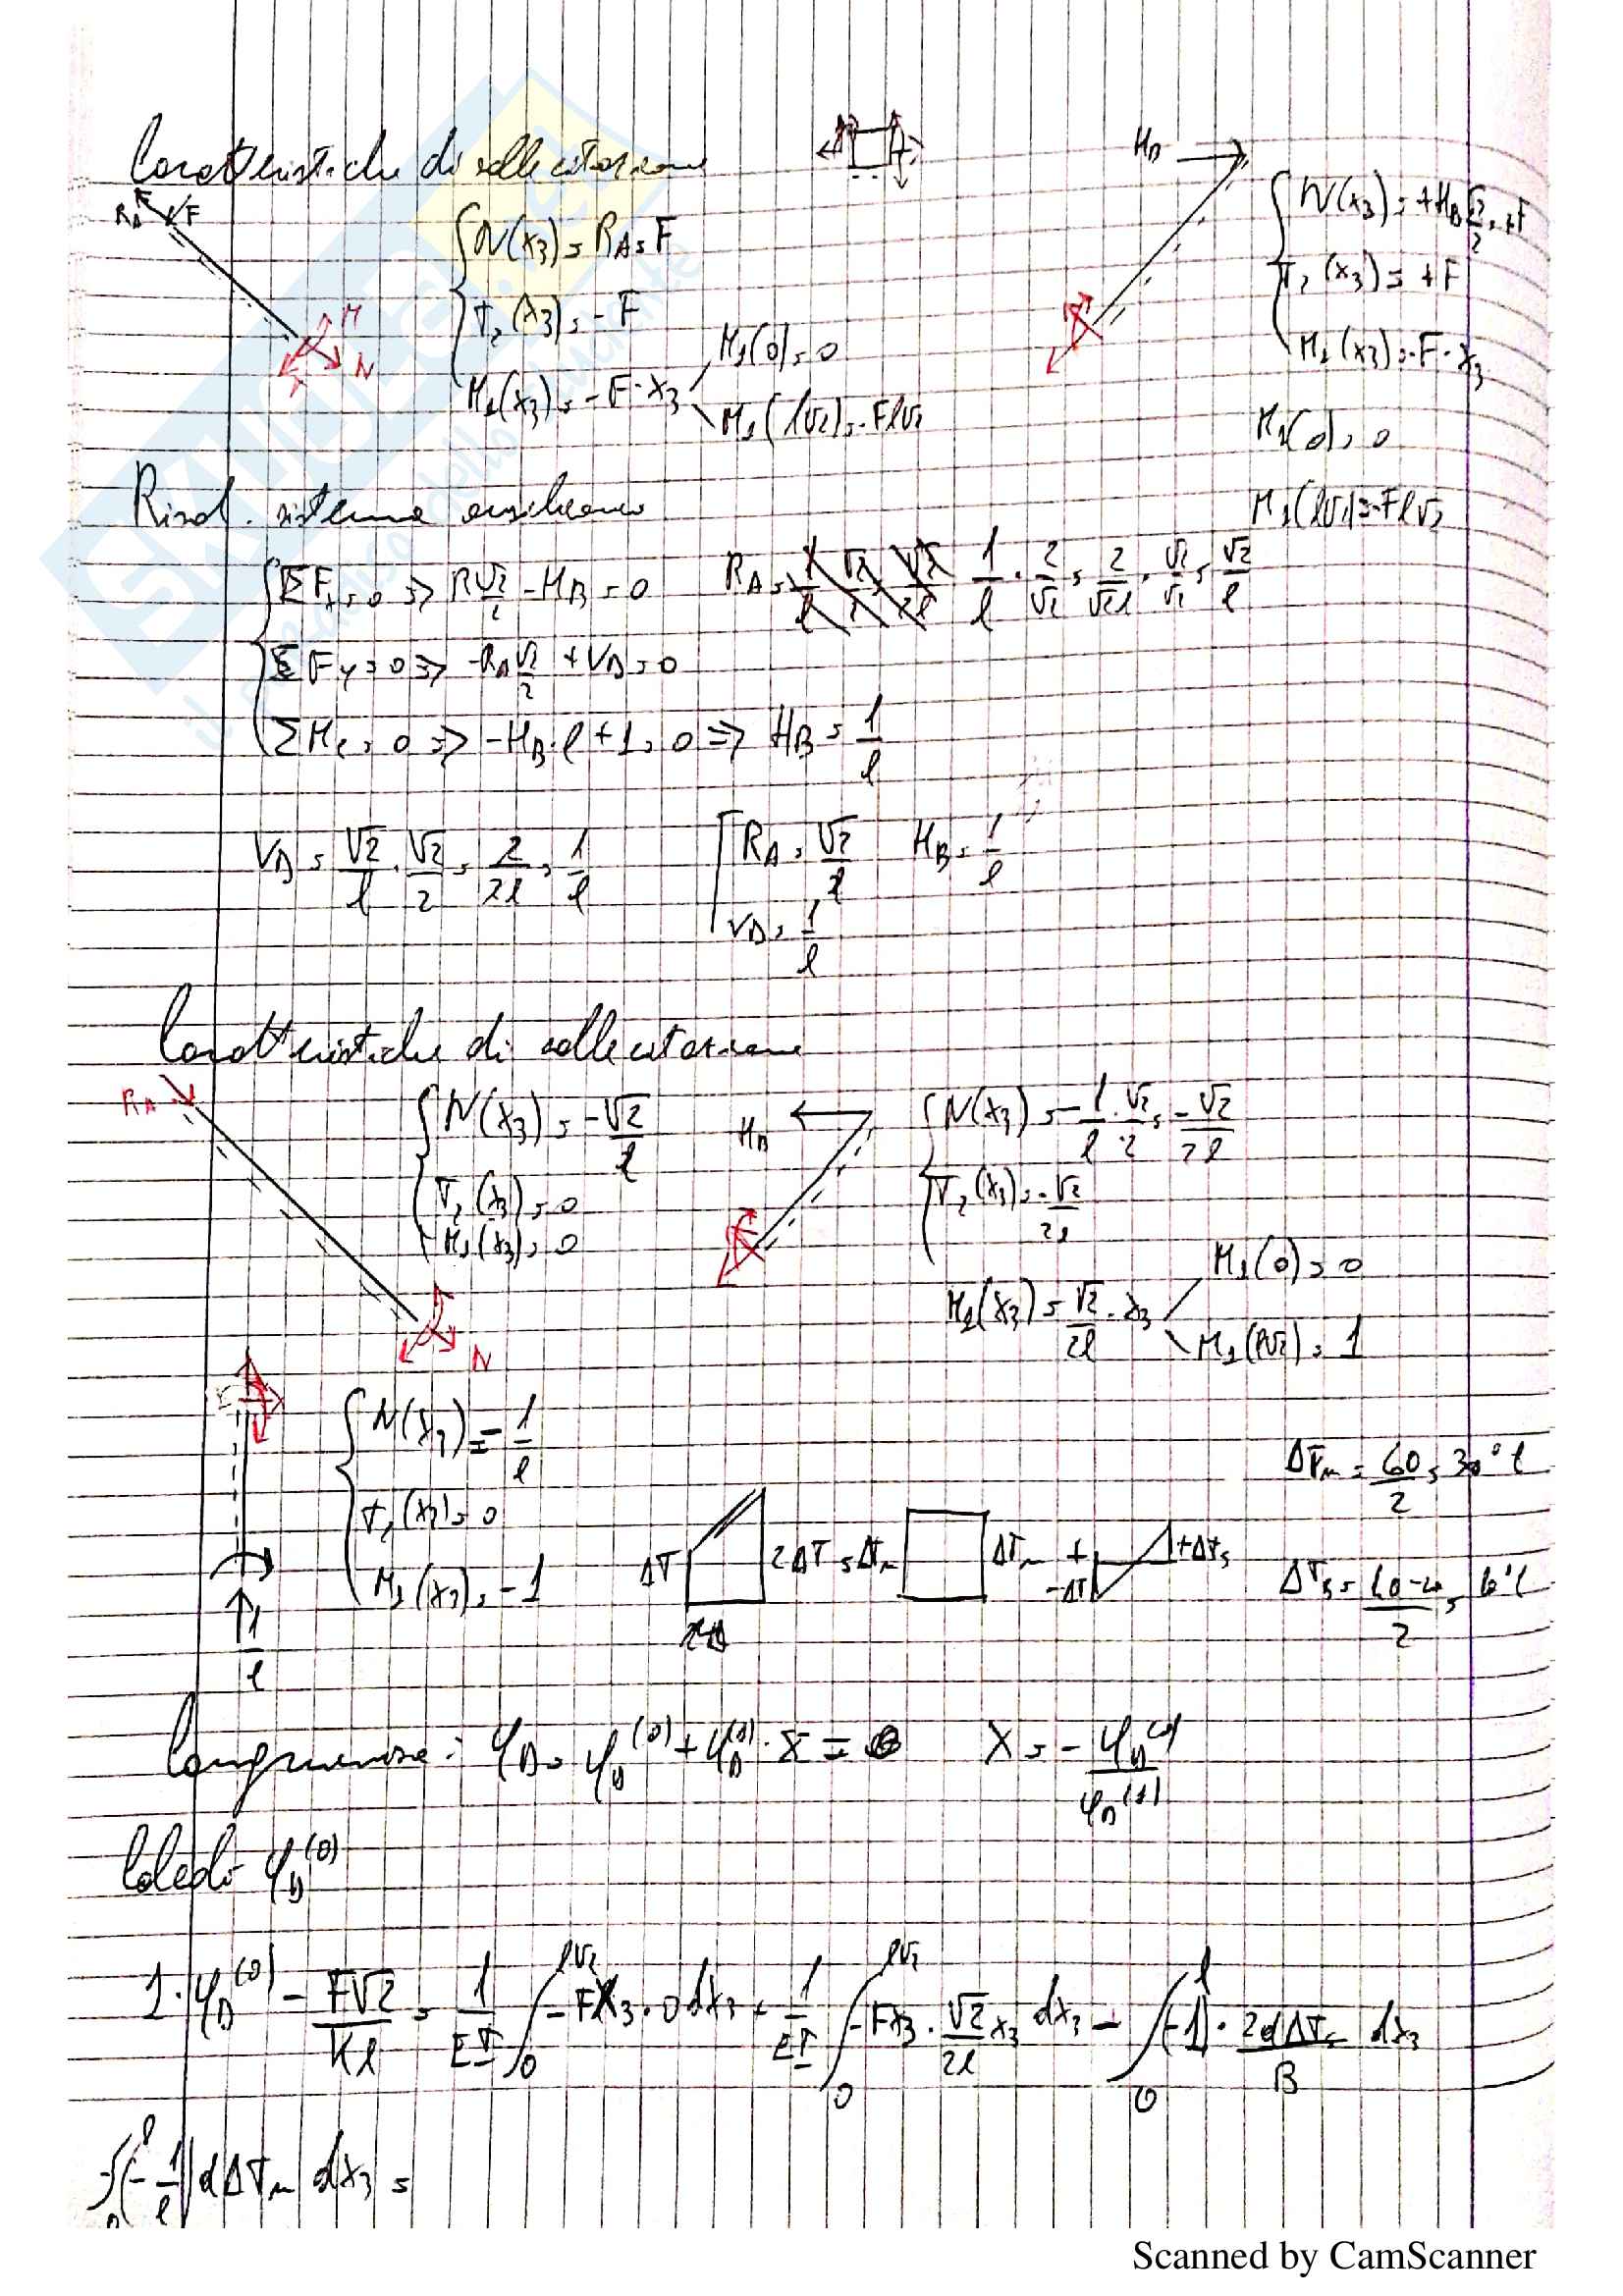 Caratteristiche di sollecitazione
R_A F
M
N
T
{ N(x_3) = R_A = F
T_2(x_3) = -F
M_1(x_3) = -F·x_3
M_1(0) = 0
M_1(l√2) = -Fl√2
H_B
{ N(x_3) = +H_B √2/2 = +F
T_2(x_3) = +F
M_1(x_3) = -F·x_3
M_1(0) = 0
M_1(l√2) = -Fl√2
Risol. sistema ausiliario
{ ΣF_x = 0 => R √2/2 - H_B = 0
R_A = 1/l · 2/√2 = 2/√2l · √2/√2 = √2/l
ΣF_y = 0 => -R_A √2/2 + V_D = 0
ΣM_C = 0 => -H_B·l + 1 = 0 => H_B = 1/l
V_D = √2/l · √2/2 = 2/2l = 1/l
R_A = √2/l H_B = 1/l
V_D = 1/l
Caratteristiche di sollecitazione
R_A
N
{ N(x_3) = -√2/l
T_2(x_3) = 0
M_1(x_3) = 0
H_B
{ N(x_3) = -1/l · √2/2 = -√2/2l
T_2(x_3) = -√2/2l
M_1(x_3) = √2/2l · x_3
M_1(0) = 0
M_1(l√2) = 1
{ N(x_3) = -1/l
T_2(x_3) = 0
M_1(x_3) = -1
1/l
ΔT 2ΔT = ΔT_m ΔT_m + -ΔT +ΔT_s
ΔT_m = 60/2 = 30°C
Congruenza: φ_D = φ_D^(0) + φ_D^(1) · X = 0 X = - φ_D^(0)/φ_D^(1)
Calcolo φ_D^(0)
1·φ_D^(0) - F√2/Kl = 1/EI ∫_0^{l√2} -Fx_3·0 dx_3 + 1/EI ∫_0^{l√2} -Fx_3 · √2/2l x_3 dx_3 - ∫_0^l (-1)· 2αΔT_s/B dx_3
-∫_0^l (-1/l) αΔT_m dx_3 =
Scanned by CamScanner